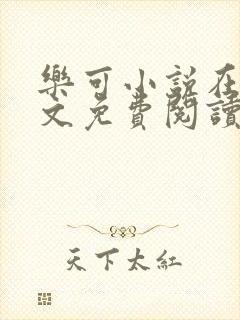 樂可小說在
文免費閱讀
天下太紅